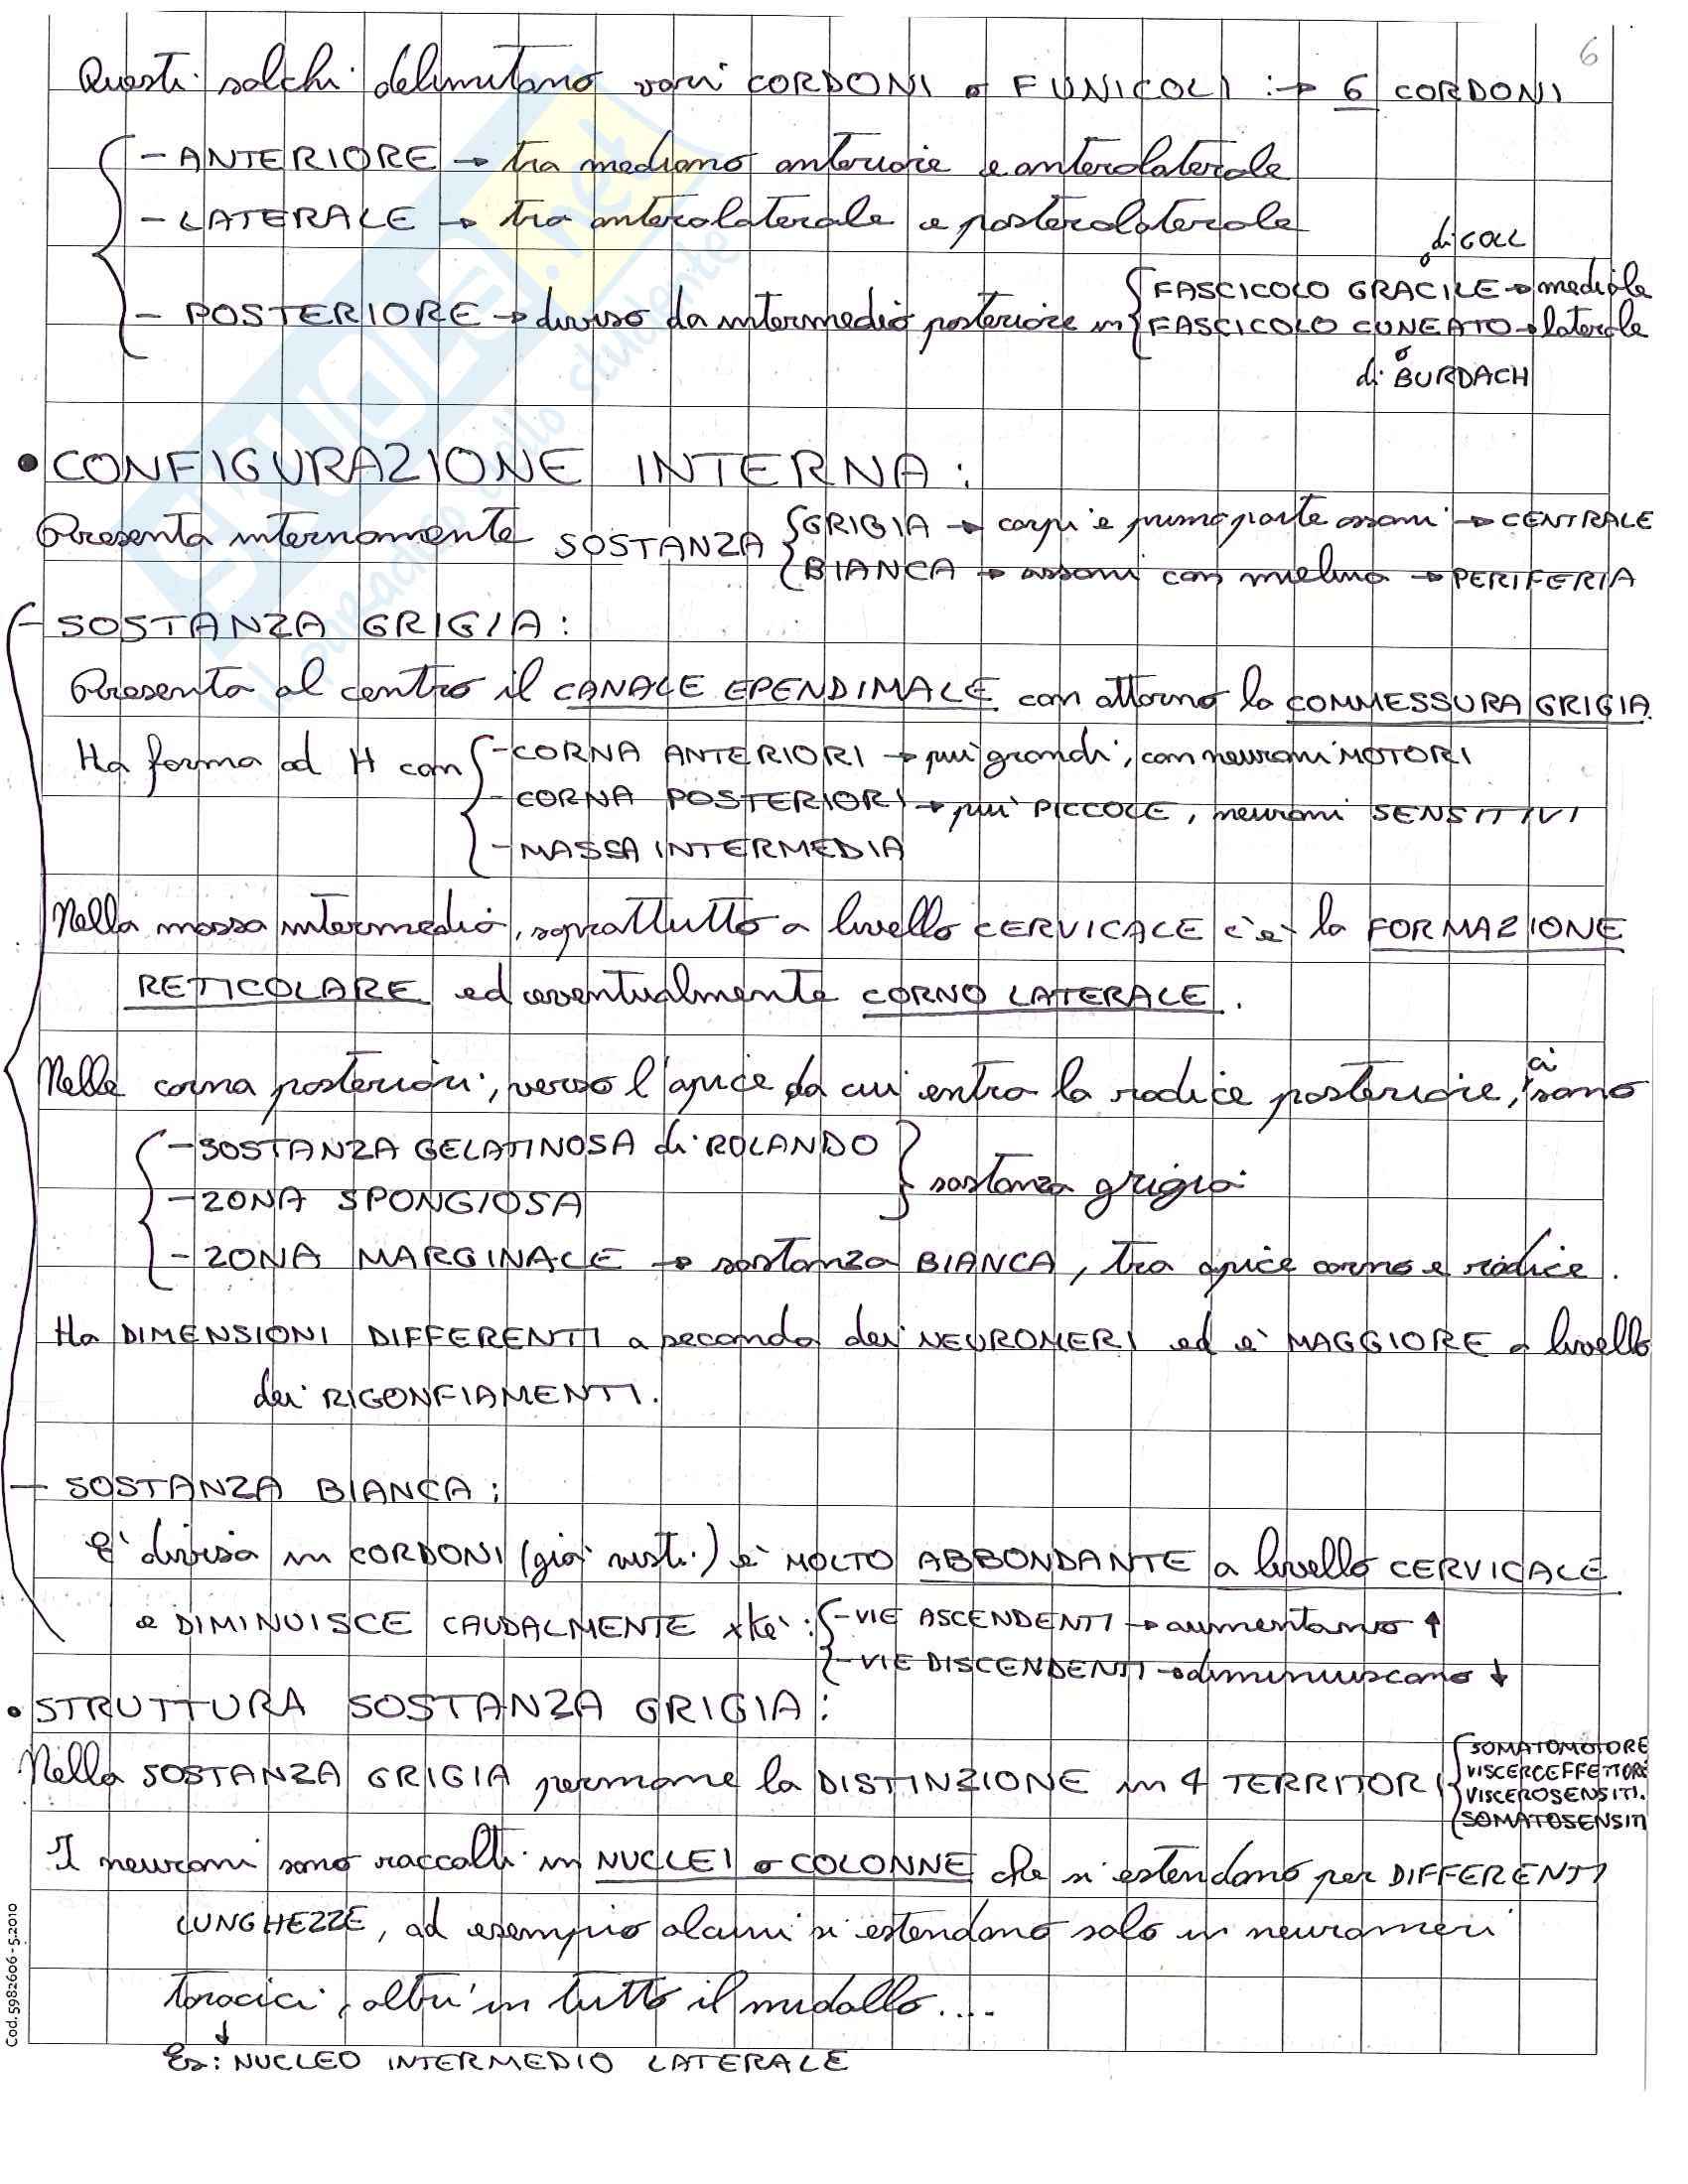 6
Questi solchi delimitano vari CORDONI o FUNICOLI :→ 6 CORDONI
- ANTERIORE → tra mediano anteriore e anterolaterale
- LATERALE → tra anterolaterale e posterolaterale
di GOLL
- POSTERIORE → diviso da intermedio posteriore in { FASCICOLO GRACILE → mediale
FASCICOLO CUNEATO → laterale
o
di BURDACH
• CONFIGURAZIONE INTERNA :
Presenta internamente SOSTANZA { GRIGIA → corpi e prima parte assoni → CENTRALE
BIANCA → assoni con mielina → PERIFERIA
- SOSTANZA GRIGIA :
Presenta al centro il CANALE EPENDIMALE con attorno la COMMESSURA GRIGIA.
Ha forma ad H con { - CORNA ANTERIORI → più grandi, con neuroni MOTORI
- CORNA POSTERIORI → più PICCOLE, neuroni SENSITIVI
- MASSA INTERMEDIA
Nella massa intermedia, soprattutto a livello CERVICALE c'è la FORMAZIONE
RETICOLARE ed eventualmente CORNO LATERALE.
Nelle corna posteriori, verso l'apice da cui entra la radice posteriore, ci sono
- SOSTANZA GELATINOSA di ROLANDO
- ZONA SPONGIOSA } sostanza grigia
- ZONA MARGINALE → sostanza BIANCA, tra apice corno e radice.
Ha DIMENSIONI DIFFERENTI a seconda dei NEUROMERI ed è MAGGIORE a livello
dei RIGONFIAMENTI.
- SOSTANZA BIANCA :
E' divisa in CORDONI (già visti) è MOLTO ABBONDANTE a livello CERVICALE
e DIMINUISCE CAUDALMENTE xké : { - VIE ASCENDENTI → aumentano ↑
- VIE DISCENDENTI → diminuiscono ↓
• STRUTTURA SOSTANZA GRIGIA :
Nella SOSTANZA GRIGIA permane la DISTINZIONE in 4 TERRITORI { SOMATOMOTORE
VISCEROEFFETTORE
VISCEROSENSITI.
SOMATOSENSITI
I neuroni sono raccolti in NUCLEI o COLONNE che si estendono per DIFFERENTI
LUNGHEZZE, ad esempio alcuni si estendono solo in neuromeri
toracici, altri in tutto il midollo....
↓
Es: NUCLEO INTERMEDIO LATERALE
Cod. 5982606 - 5.2010
SKUOLA.net